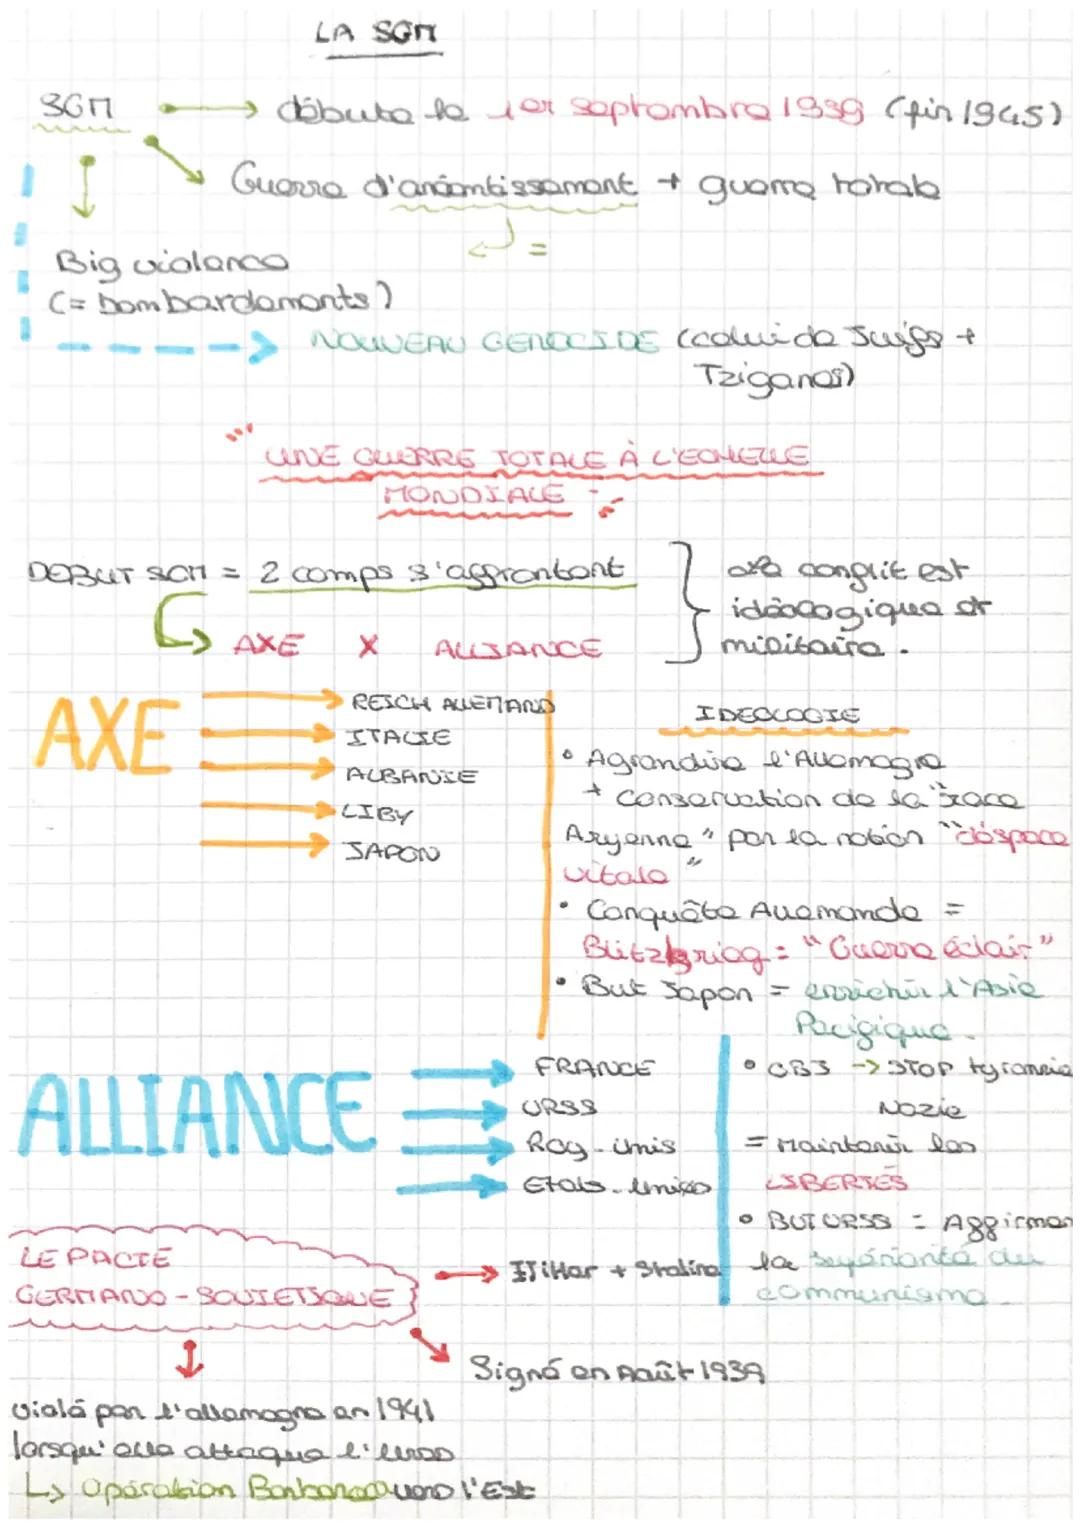 LA SGM
SGM → débute le 1er septembre 1939 (fin 1945)
Guerre d'anéantissement + guerre totale
=
Big violence
(= bombardements)
NOUVEAU GENOCIDE (celui de Juifs +
Tziganes)
UNE GUERRE TOTALE À L'ECHELLE
MONDIALE
DEBUT SGM = 2 camps s'affrontent
AXE X ALLIANCE
Le conflit est
idéologique et
militaire.
AXE
REICH ALLEMAND
ITALIE
ALBANIE
LIBY
JAPON
IDEOLOGIE
• Agrandire l'Allemagne
+ Conservation de la "race
Aryenne" par la notion "d'éspace
vitale"
• Conquête Allemande =
Blitzkrieg = "Guerre éclair"
• But Japon = enrichir l'Asie
Pacifique.
ALLIANCE
FRANCE
URSS
Roy-Unis
Etats-Unis
• OBJ → STOP tyrannie
Nazie
= Maintenir les
LIBERTES
• BUT URSS = Affirmer
la supériorité du
communisme
LE PACTE
GERMANO-SOVIETIQUE
→ Hitler + Staline
Signé en Août 1939
violé par l'allemagne en 1941
lorsqu'elle attaque l'URSS
↳ Opération Barbarossa vers l'Est